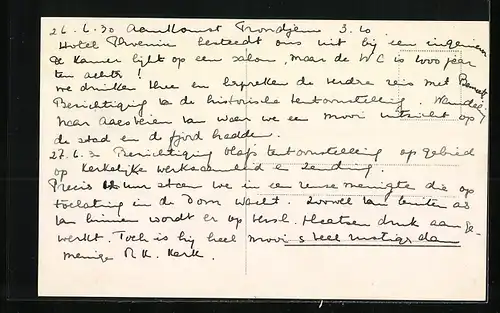 26.6.30 Aankomst Trondjem 3.10
Hotel Phoenix besteedt ons uit bij een ingenieur
De kamer lijkt op een salon, maar de WC is 1000 jaar
ten achter!
We drinken thee en bespreken de verdre reis met Bennett
Bezichtiging v.d. historische tentoonstelling. Wandeling
naar van waar we een mooi uitzicht op
de stad en de fjord hadden.
27.6.30 Bezichtiging Olafs tentoonstelling op gebied
op kerkelijke werkzaamheid en Zending.
Precies uur staan we in een reuse menigte die op
toelating in de Dom wacht. Zoowel van buiten als
van binnen wordt er op versch. plaatsen druk aan ge-
werkt. Toch is hij heel mooi & veel rustiger dan
menige R.K. Kerk.